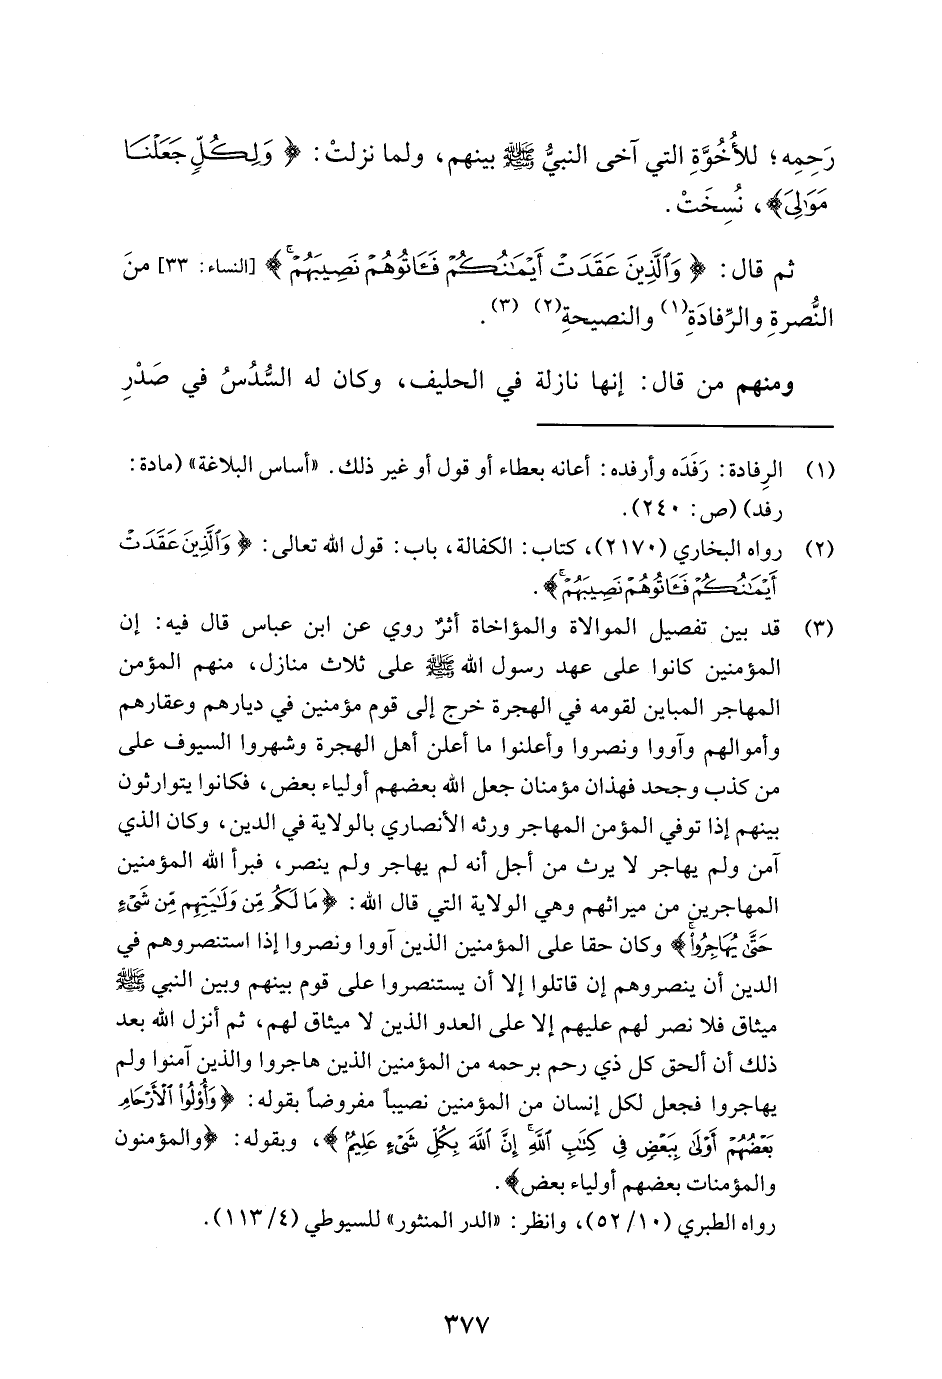 رَحِمِه؛ للأُخُوَّةِ التي آخى النبيُّ ﷺ بينهم، ولما نزلتْ: ﴿ وَلِكُلٍّ جَعَلْنَا
مَوَٰلِىَ﴾، نُسِخَتْ.
ثم قال: ﴿ وَٱلَّذِينَ عَقَدَتْ أَيْمَٰنُكُمْ فَـَٔاتُوهُمْ نَصِيبَهُمْ ۚ﴾ [النساء: ٣٣] منَ
النُّصرةِ والرِّفادَةِ(١) والنصيحةِ(٢) (٣).
ومنهم من قال: إنها نازلة في الحليف، وكان له السُّدُسُ في صَدْرِ
(١) الرِفادة: رَفَدَه وأرفده: أعانه بعطاء أو قول أو غير ذلك. «أساس البلاغة» (مادة:
رفد) (ص: ٢٤٠).
(٢) رواه البخاري (٢١٧٠)، كتاب: الكفالة، باب: قول الله تعالى: ﴿ وَٱلَّذِينَ عَقَدَتْ
أَيْمَٰنُكُمْ فَـَٔاتُوهُمْ نَصِيبَهُمْ ۚ﴾.
(٣) قد بين تفصيل الموالاة والمؤاخاة أثرٌ روي عن ابن عباس قال فيه: إن
المؤمنين كانوا على عهد رسول الله ﷺ على ثلاث منازل، منهم المؤمن
المهاجر المباين لقومه في الهجرة خرج إلى قوم مؤمنين في ديارهم وعقارهم
وأموالهم وآووا ونصروا وأعلنوا ما أعلن أهل الهجرة وشهروا السيوف على
من كذب وجحد فهذان مؤمنان جعل الله بعضهم أولياء بعض، فكانوا يتوارثون
بينهم إذا توفي المؤمن المهاجر ورثه الأنصاري بالولاية في الدين، وكان الذي
آمن ولم يهاجر لا يرث من أجل أنه لم يهاجر ولم ينصر، فبرأ الله المؤمنين
المهاجرين من ميراثهم وهي الولاية التي قال الله: ﴿ مَا لَكُم مِّن وَلَٰيَتِهِم مِّن شَىْءٍ
حَتَّىٰ يُهَاجِرُوا۟ ۚ﴾ وكان حقا على المؤمنين الذين آووا ونصروا إذا استنصروهم في
الدين أن ينصروهم إن قاتلوا إلا أن يستنصروا على قوم بينهم وبين النبي ﷺ
ميثاق فلا نصر لهم عليهم إلا على العدو الذين لا ميثاق لهم، ثم أنزل الله بعد
ذلك أن ألحق كل ذي رحم برحمه من المؤمنين الذين هاجروا والذين آمنوا ولم
يهاجروا فجعل لكل إنسان من المؤمنين نصيباً مفروضاً بقوله: ﴿ وَأُو۟لُوا۟ ٱلْأَرْحَامِ
بَعْضُهُمْ أَوْلَىٰ بِبَعْضٍ فِى كِتَٰبِ ٱللَّهِ ۗ إِنَّ ٱللَّهَ بِكُلِّ شَىْءٍ عَلِيمٌ﴾، وبقوله: ﴿والمؤمنون
والمؤمنات بعضهم أولياء بعض﴾.
رواه الطبري (١٠/ ٥٢)، وانظر: «الدر المنثور» للسيوطي (٤/ ١١٣).
٣٧٧